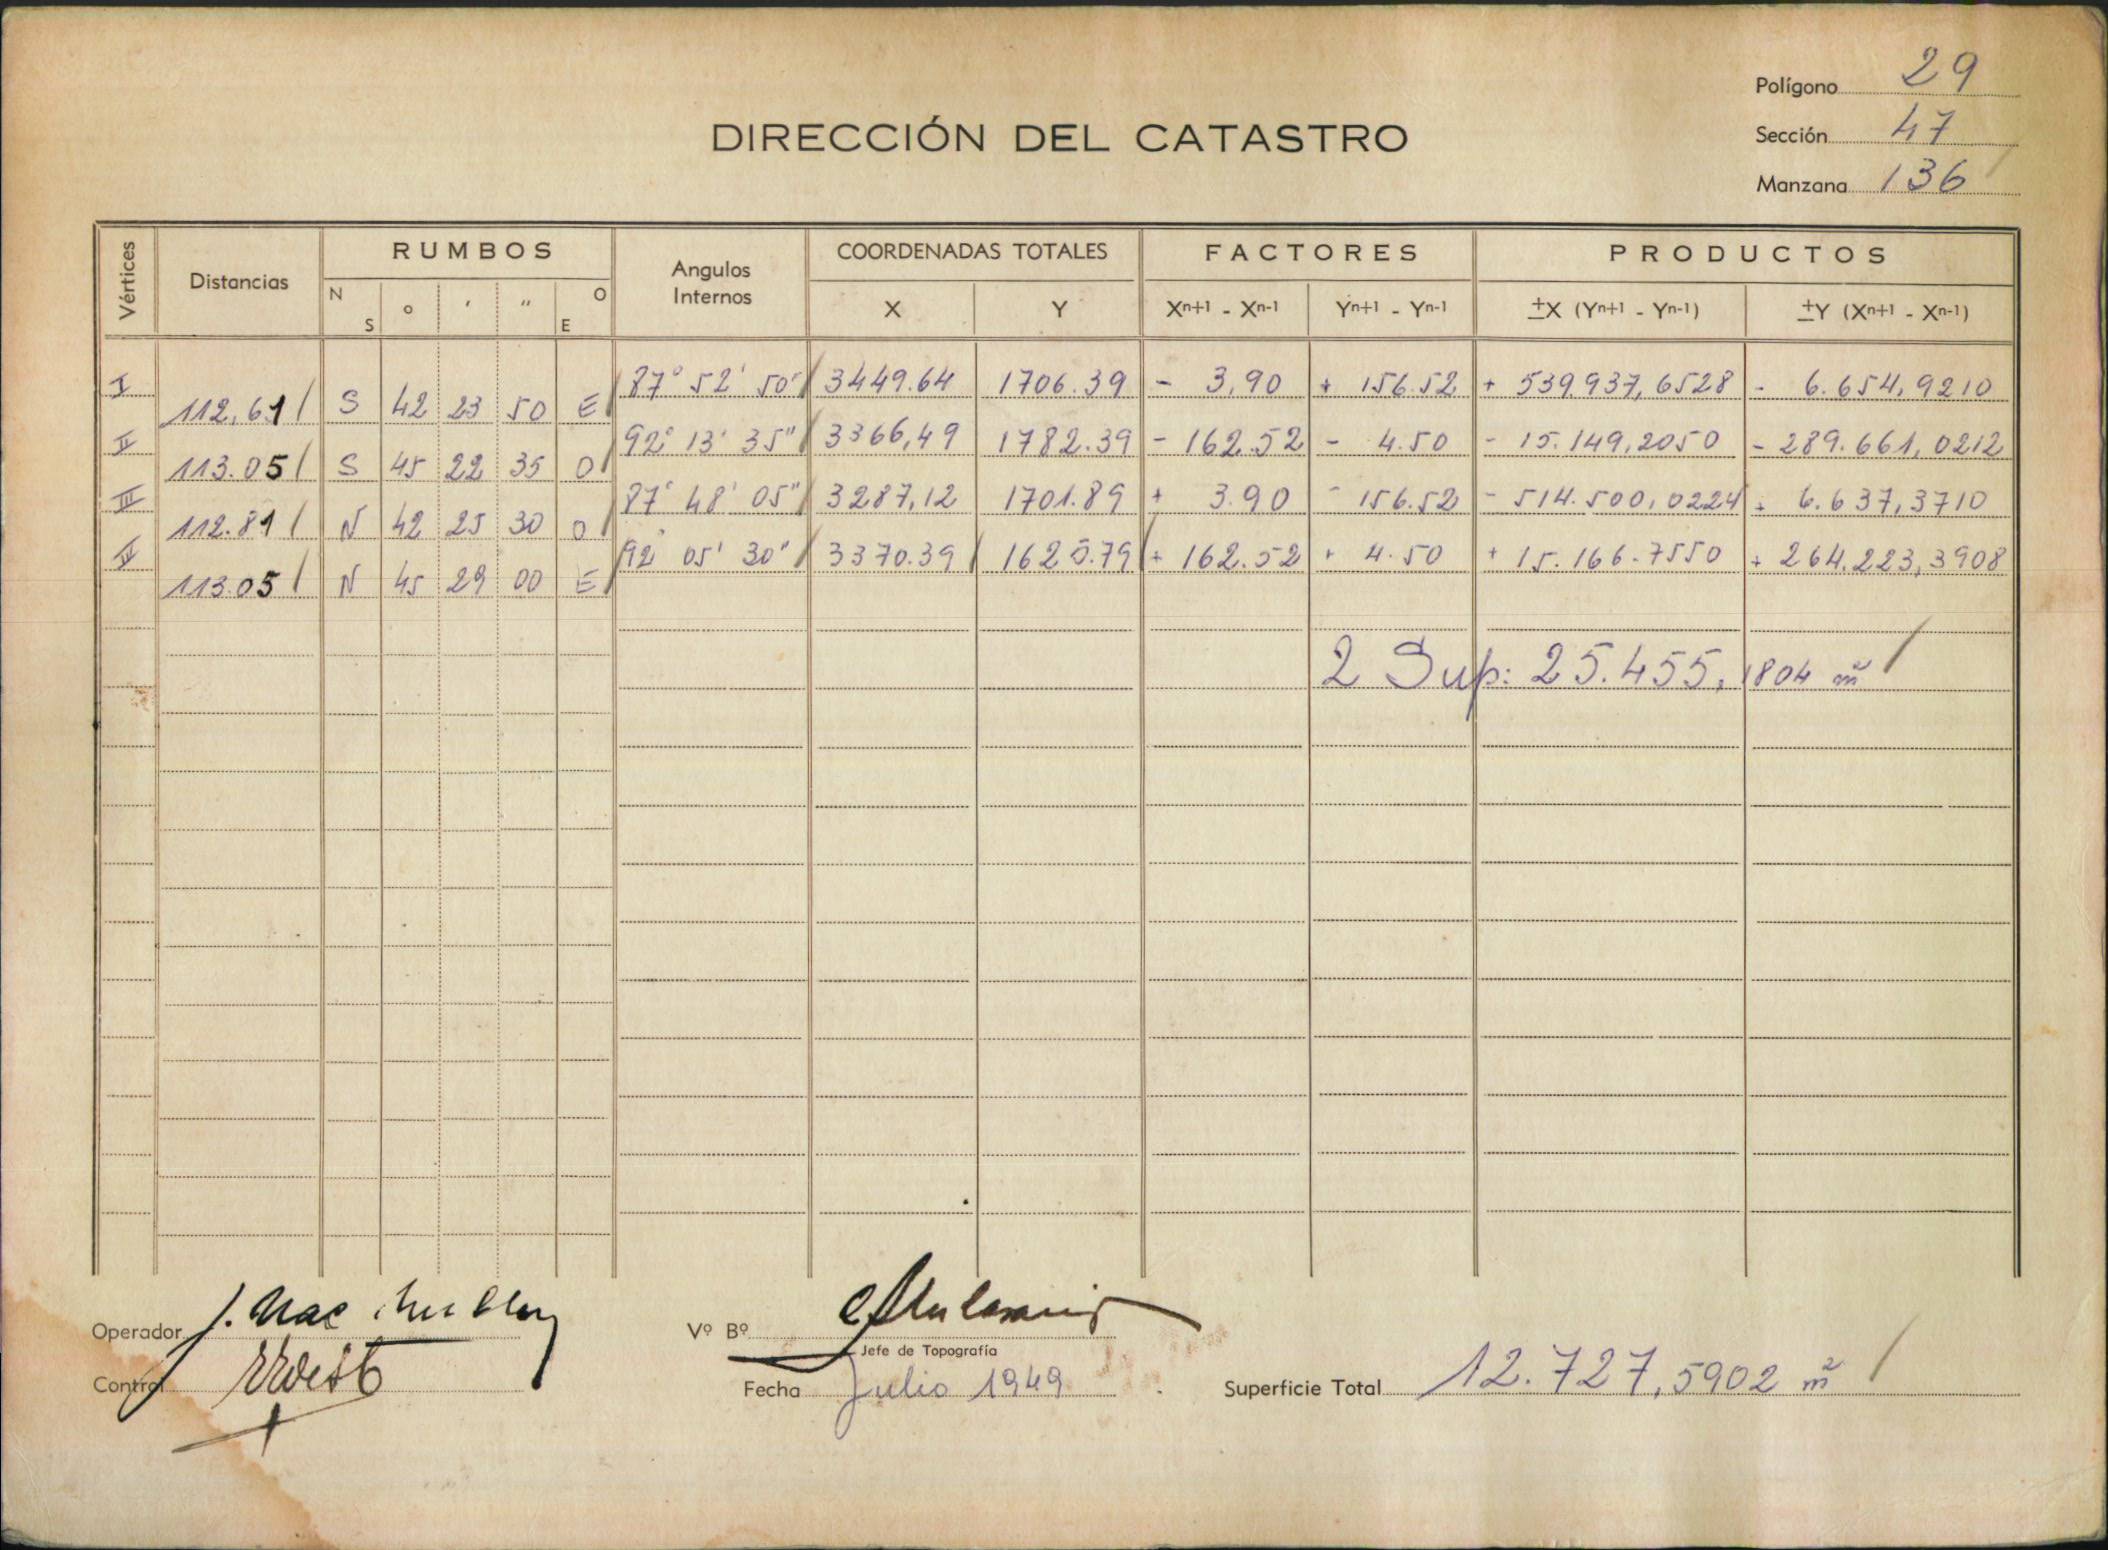 Polígono 29
DIRECCIÓN DEL CATASTRO
Sección 47
Manzana 136
Vértices Distancias RUMBOS Angulos Internos COORDENADAS TOTALES FACTORES PRODUCTOS
N S ° ' " O E X Y Xn+1 - Xn-1 Yn+1 - Yn-1 ±X (Yn+1 - Yn-1) ±Y (Xn+1 - Xn-1)
I 87° 52' 50" 3449.64 1706.39 - 3,90 + 156.52 + 539.937,6528 - 6.654,9210
112,61 S 42 23 50 E
II 92° 13' 35" 3366,49 1782.39 - 162.52 - 4.50 - 15.149,2050 - 289.661,0212
113.05 S 45 22 35 O
III 87° 48' 05" 3287,12 1701.89 + 3.90 - 156.52 - 514.500,0224 + 6.637,3710
112.81 N 42 25 30 O
IV 92° 05' 30" 3370.39 1625.79 + 162.52 + 4.50 + 15.166.7550 + 264.223,3908
113.05 N 45 29 00 E
2 Sup: 25.455,1804 m²
Operador J. Mac
Vº Bº
Jefe de Topografía
Control
Fecha Julio 1949
Superficie Total 12.727,5902 m²